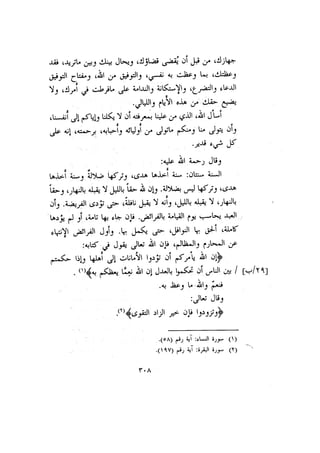 جهازك، من قبل أن يُقضى قضاؤك، ويحال بينك وبين ماتريد، فقد
وعظتك، بما وعظت به نفسي، والتوفيق من الله، ومفتاح التوفيق
الدعاء والتضرع، والإستكانة والندامة على مافرطت في أمرك، ولا
يضيع حقك من هذه الأيام والليالي.
أسأل الله، الذي من علينا بمعرفته أن لا يكلنا وإياكم إلى أنفسنا،
وأن يتولى منا ومنكم ماتولى من أوليائه وأحبابه، برحمته، إنه على
كل شيء قدير.
وقال رحمة الله عليه:
السنة سنتان: سنة أخذها هدى، وتركها ضلالةٌ وسنة أخذها
هدى، وتركها ليس بضلالة. وإن لله حقاً بالليل لا يقبله بالنهار، وحقاً
بالنهار، لا يقبله بالليل، وأنه لا يقبل نافلةً، حتى تؤدى الفريضة. وأن
العبد يحاسب يوم القيامة بالفرائض. فإن جاء بها تامة، أو لم يؤدها
كاملة، ألحق بها النوافل، حتى يكمل بها. وأول الفرائض الإنتهاء
عن المحارم والمظالم، فإن الله تعالى يقول في كتابه:
﴿إن الله يأمركم أن تؤدوا الأمانات إلى أهلها وإذا حكمتم
[٢٩/ب] / بين الناس أن تحكموا بالعدل إن الله نعِمَّا يعظكم به﴾(١).
فنعمّ والله ما وعظ به.
وقال تعالى:
﴿وتزودوا فإن خير الزاد التقوى﴾(٢).
(١) سورة النساء: آية رقم (٥٨).
(٢) سورة البقرة: آية رقم (١٩٧).
٣٠٨